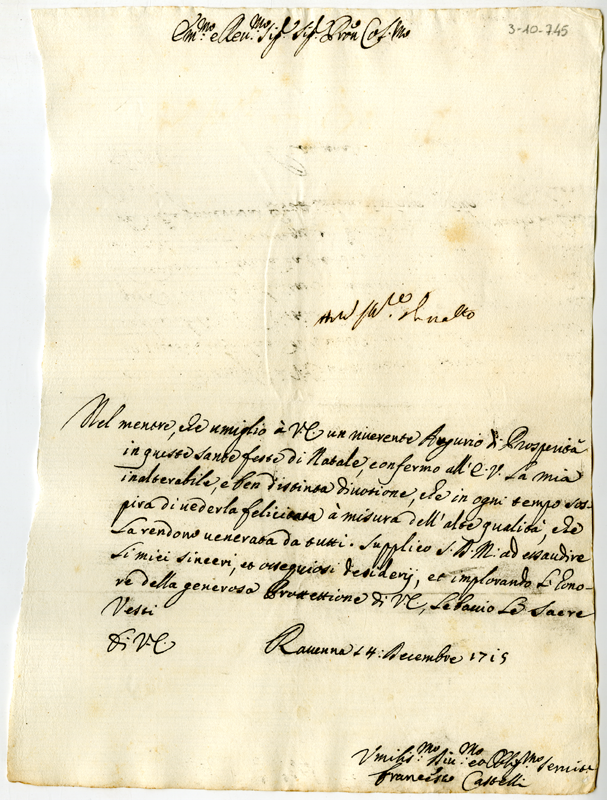 3-10-745
Em.mo e Reu.mo Sig.r Sig.r Pron Col.mo
Nel mentre, che umiglio à V.E. un riuerente Augurio di Prosperità
in queste sante feste di Natale, confermo all'E.V. La mia
inalterabile, e ben distinta diuotione, che in ogni tempo sos-
pira di uederla felicitata à misura dell'alte qualità, che
La rendono uenerata da tutti. Supplico S.D.M. ad essaudire
Li miei sinceri, et ossequiosi desiderij, et implorando L'Hono-
re della generosa Protettione di V.E, Le bacio Le Sacre
Vesti
Di V.E.
Rauenna 14: Decembre 1715
Vmilis.mo Diu.mo et Obb.mo Seruit.e
Francesco Castelli